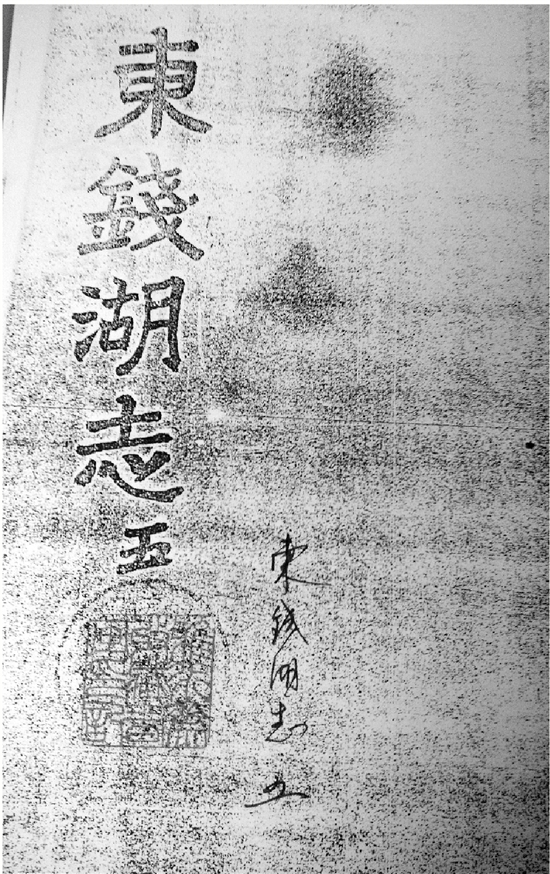 東錢湖志
五
東錢湖志 五